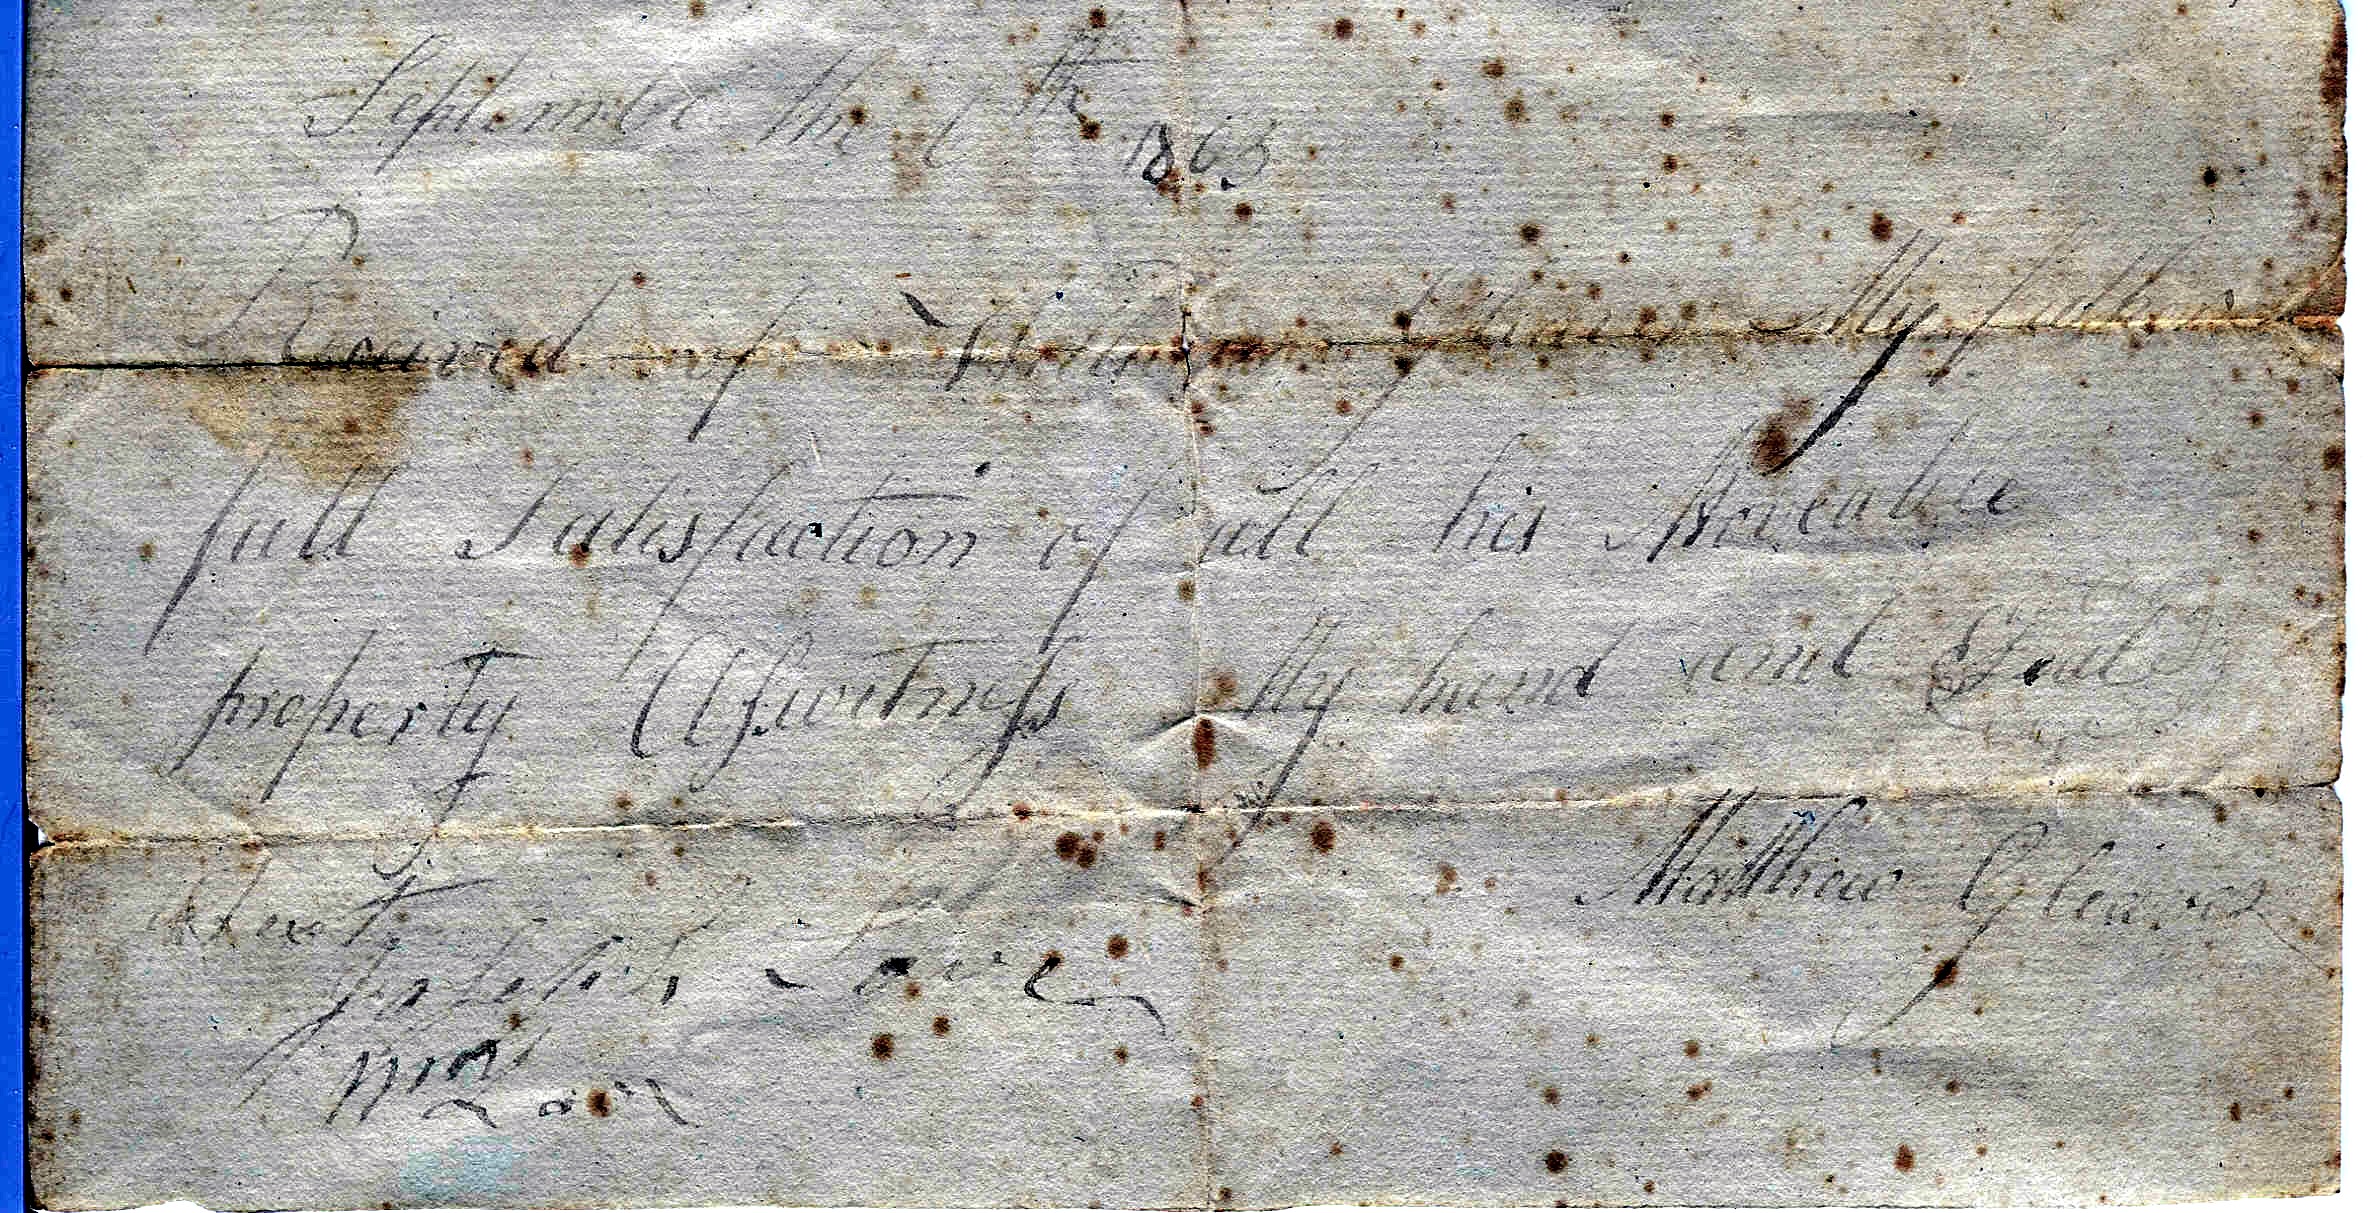 September the 6th 1863
Received of William Gleaves My father
full Satisfaction of all his Moveable
property Aswitness My hand and Seal
Matthew Gleaves
atest
Joseph Love
Wm Love